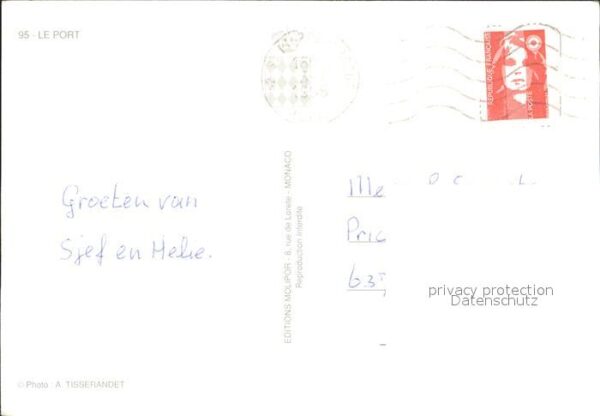 95 - LE PORT
REPUBLIQUE FRANÇAISE
LA POSTE
Groeten van
Sjef en Melie.
EDITIONS MOLIPOR - 8, rue de Lorete - MONACO
Reproduction Interdite
Me
Pric
637
privacy protection
Datenschutz
© Photo : A. TISSERANDET